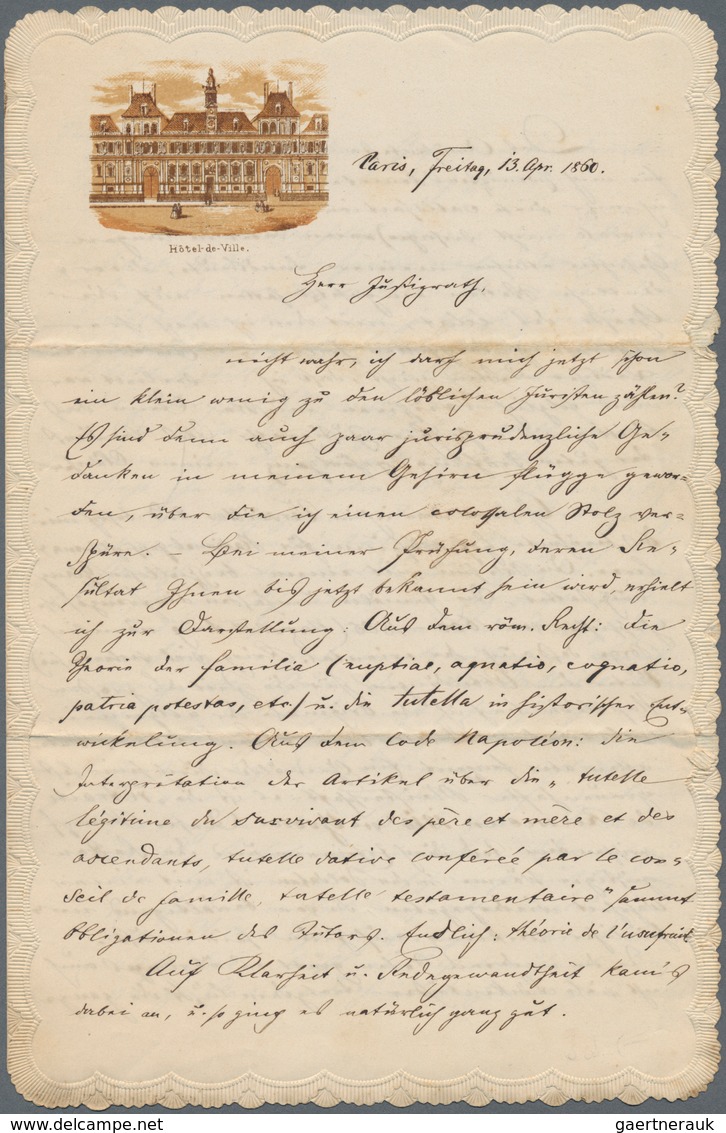 Hôtel-de-Ville.
Paris, Freitag, 13. Apr. 1860.
Herr Justizrath,
nicht wahr, ich darf mich jetzt schon
ein klein wenig zu den löblichen Juristen zählen?
Es sind denn auch paar jurisprudenzliche Ge-
danken in meinem Gehirn flügge gewor-
den, über die ich einen colossalen Stolz ver-
spüre. – Bei meiner Prüfung, deren Re-
sultat Ihnen bis jetzt bekannt sein wird, erhielt
ich zur Darstellung: Aus dem röm. Recht: die
Theorie der familia (nuptiae, agnatio, cognatio,
patria potestas, etc.) u. die tutella in historischer Ent-
wickelung. Aus dem Code Napoléon: die
Interprétation der Artikel über die „tutelle
légitime du survivant des père et mère et des
ascendants, tutelle dative conférée par le con-
seil de famille, tutelle testamentaire" sammt
Obligationen des Tutors. Endlich: théorie de l'usufruit
Auf Klarheit u. Redegewandtheit kam's
dabei an, u. so ging es natürlich ganz gut.
gaertnerauk